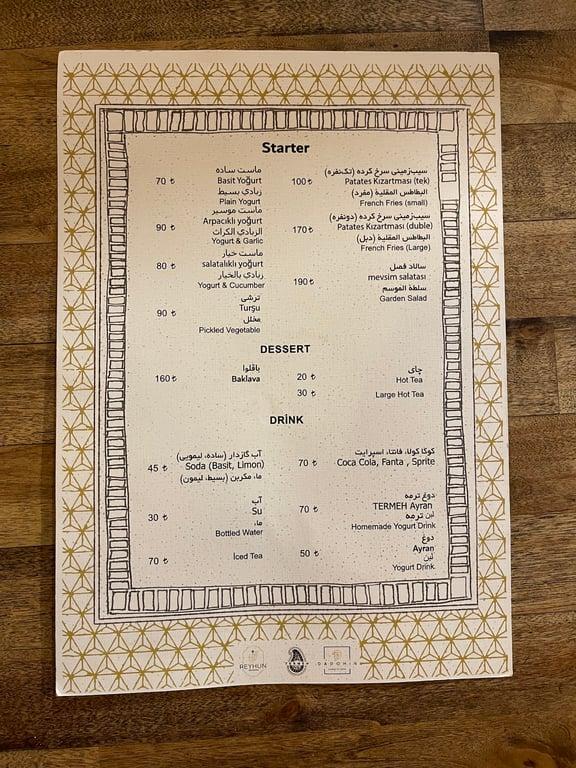 Starter
ماست ساده
70 ₺ Basit Yoğurt
زبادي بسيط
Plain Yogurt
ماست موسیر
Arpacıklı yoğurt
90 ₺
الزبادي الكراث
Yogurt & Garlic
ماست خیار
80 ₺ salatalıklı yoğurt
زبادي بالخيار
Yogurt & Cucumber
ترشی
Turşu
90 ₺
مخلل
Pickled Vegetable
سیب‌زمینی سرخ کرده (تک‌نفره)
100 ₺ Patates Kızartması (tek)
البطاطس المقلية (مفرد)
French Fries (small)
سیب‌زمینی سرخ کرده (دونفره)
170 ₺ Patates Kızartması (duble)
البطاطس المقلية (دبل)
French Fries (Large)
سالاد فصل
mevsim salatası
190 ₺
سلطة الموسم
Garden Salad
DESSERT
باقلوا
160 ₺ Baklava
چای
20 ₺ Hot Tea
30 ₺ Large Hot Tea
DRİNK
آب گازدار (ساده، لیمویی)
45 ₺ Soda (Basit, Limon)
ماء مكربن (بسيط، ليمون)
آب
Su
30 ₺
ماء
Bottled Water
70 ₺ İced Tea
کوکا کولا، فانتا، اسپرایت
70 ₺ Coca Cola, Fanta , Sprite
دوغ ترمه
70 ₺ TERMEH Ayran
لبن ترمه
Homemade Yogurt Drink
دوغ
50 ₺ Ayran
لبن
Yogurt Drink
REYHUN
DADOHIN